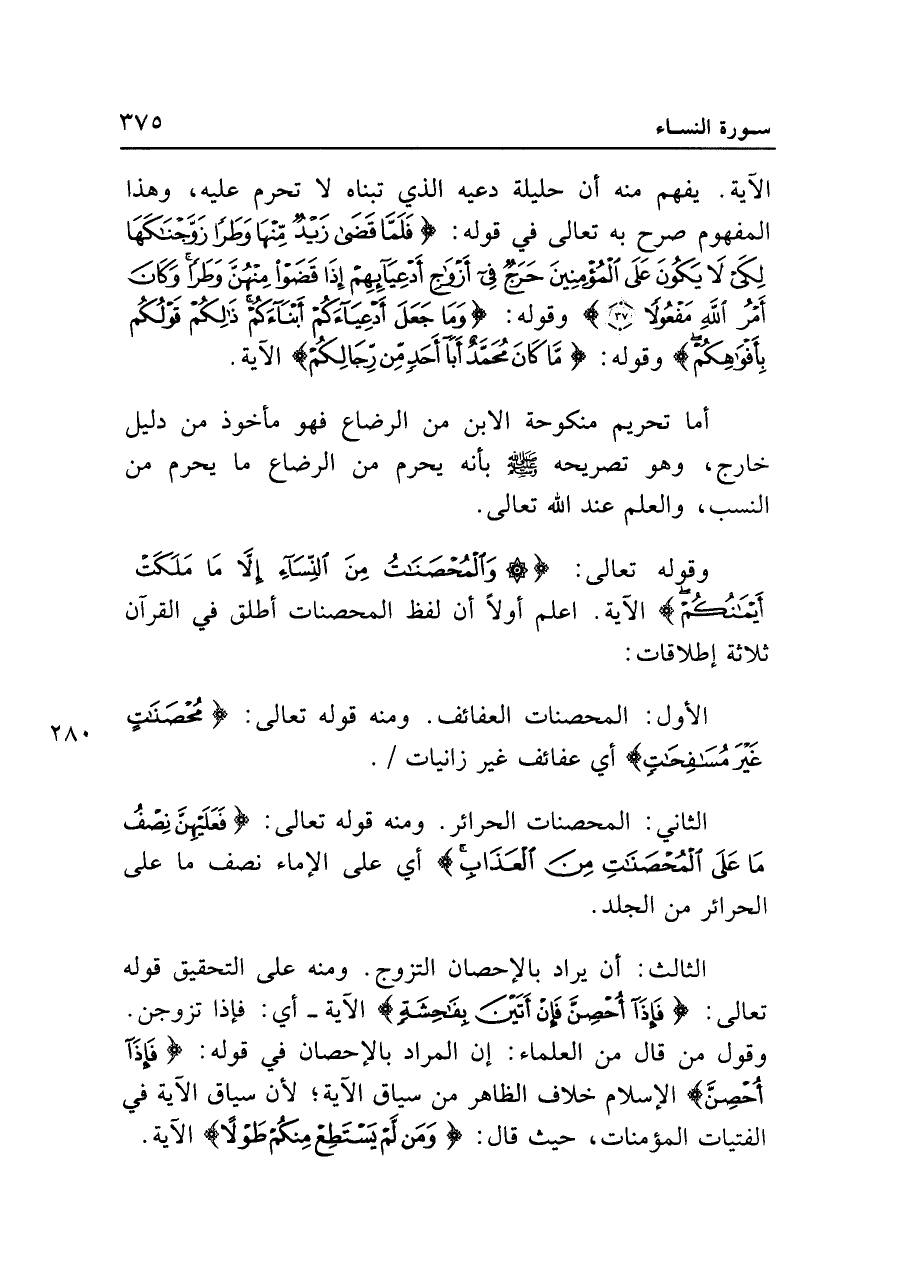 سورة النساء ٣٧٥
الآية. يفهم منه أن حليلة دعيه الذي تبناه لا تحرم عليه، وهذا
المفهوم صرح به تعالى في قوله: ﴿ فَلَمَّا قَضَىٰ زَيْدٌ مِّنْهَا وَطَرًا زَوَّجْنَٰكَهَا
لِكَىْ لَا يَكُونَ عَلَى الْمُؤْمِنِينَ حَرَجٌ فِىٓ أَزْوَٰجِ أَدْعِيَآئِهِمْ إِذَا قَضَوْا۟ مِنْهُنَّ وَطَرًا ۚ وَكَانَ
أَمْرُ ٱللَّهِ مَفْعُولًا ٣٧ ﴾ وقوله: ﴿ وَمَا جَعَلَ أَدْعِيَآءَكُمْ أَبْنَآءَكُمْ ۚ ذَٰلِكُمْ قَوْلُكُم
بِأَفْوَٰهِكُمْ ۖ ﴾ وقوله: ﴿ مَّا كَانَ مُحَمَّدٌ أَبَآ أَحَدٍ مِّن رِّجَالِكُمْ ﴾ الآية.
أما تحريم منكوحة الابن من الرضاع فهو مأخوذ من دليل
خارج، وهو تصريحه ﷺ بأنه يحرم من الرضاع ما يحرم من
النسب، والعلم عند الله تعالى.
وقوله تعالى: ﴿ ۞ وَٱلْمُحْصَنَٰتُ مِنَ ٱلنِّسَآءِ إِلَّا مَا مَلَكَتْ
أَيْمَٰنُكُمْ ۖ ﴾ الآية. اعلم أولاً أن لفظ المحصنات أطلق في القرآن
ثلاثة إطلاقات:
الأول: المحصنات العفائف. ومنه قوله تعالى: ﴿ مُحْصَنَٰتٍ
غَيْرَ مُسَٰفِحَٰتٍ ﴾ أي عفائف غير زانيات / .
٢٨٠
الثاني: المحصنات الحرائر. ومنه قوله تعالى: ﴿ فَعَلَيْهِنَّ نِصْفُ
مَا عَلَى ٱلْمُحْصَنَٰتِ مِنَ ٱلْعَذَابِ ۚ ﴾ أي على الإماء نصف ما على
الحرائر من الجلد.
الثالث: أن يراد بالإحصان التزوج. ومنه على التحقيق قوله
تعالى: ﴿ فَإِذَآ أُحْصِنَّ فَإِنْ أَتَيْنَ بِفَٰحِشَةٍ ﴾ الآية ـ أي: فإذا تزوجن.
وقول من قال من العلماء: إن المراد بالإحصان في قوله: ﴿ فَإِذَآ
أُحْصِنَّ ﴾ الإسلام خلاف الظاهر من سياق الآية؛ لأن سياق الآية في
الفتيات المؤمنات، حيث قال: ﴿ وَمَن لَّمْ يَسْتَطِعْ مِنكُمْ طَوْلًا ﴾ الآية.